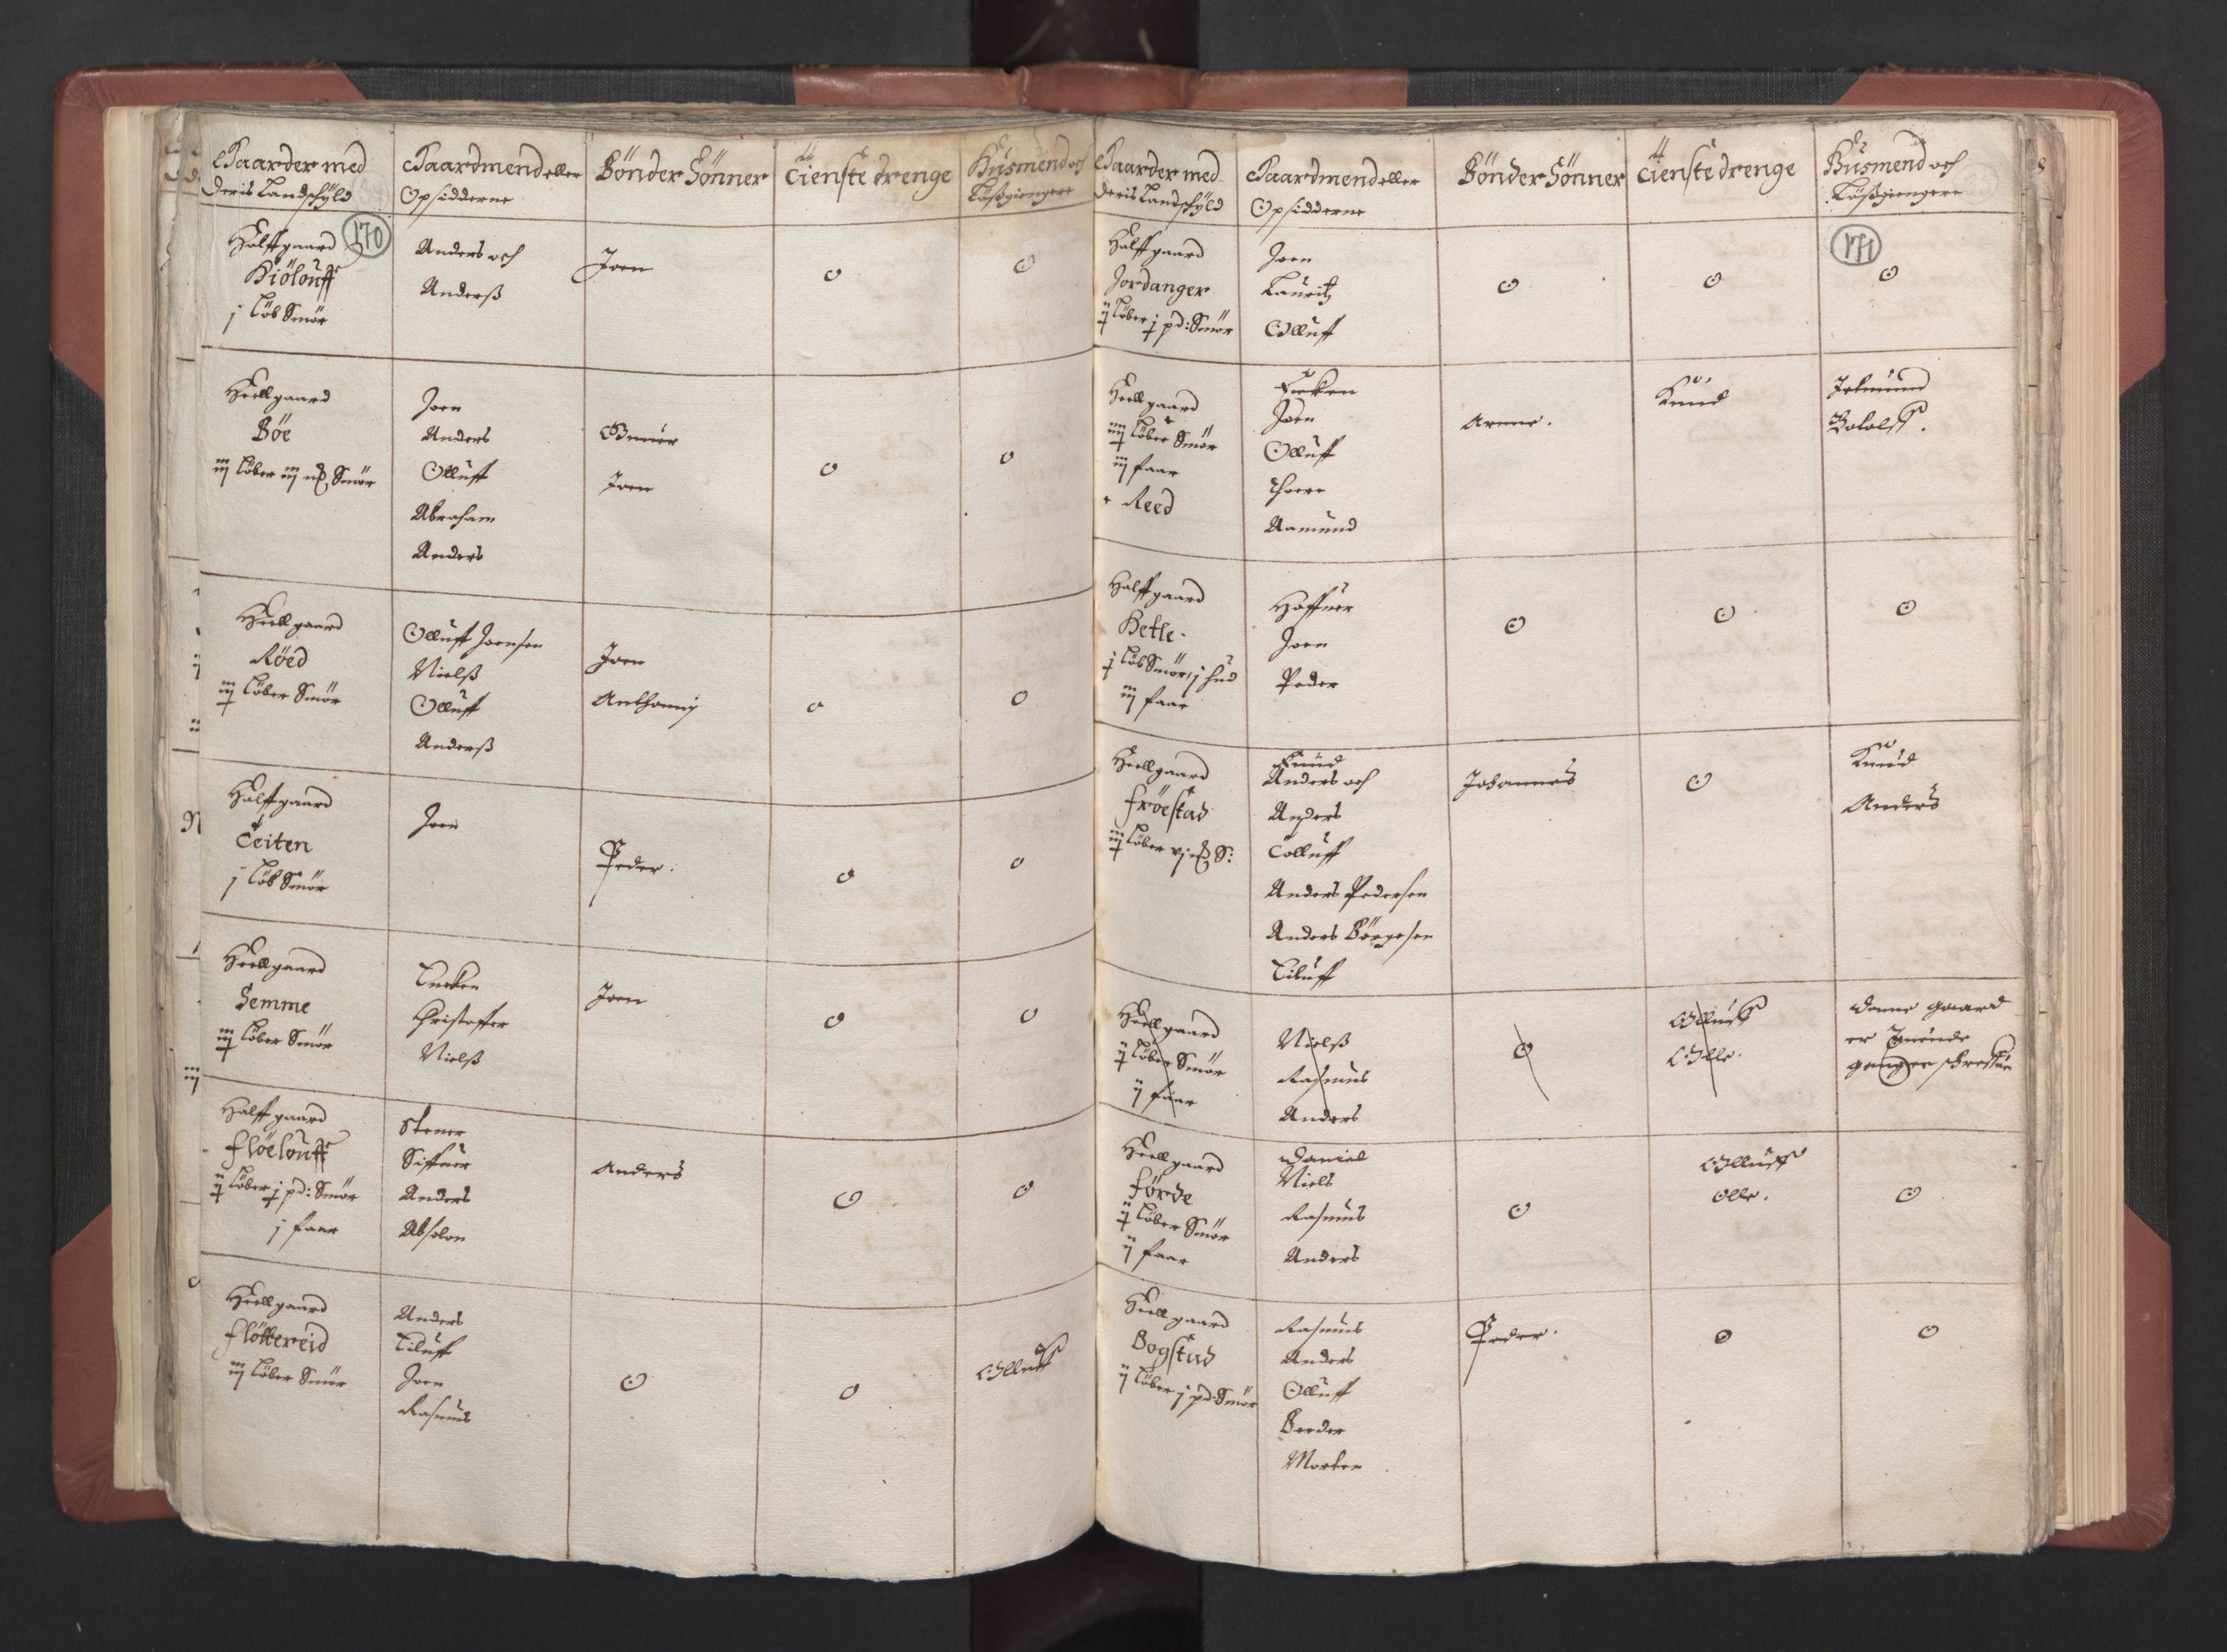 Gaarder med
deris Landschÿld
Gaardmend eller
Opsidderne
Bönder Sönner
Tieniste drenge
Husmend och
Lößgiengere
170
Halffgaard
Kiölouff
j Löb Smör
Anders och
Anderß
Joen
0
0
Heellgaard
Böe
iij Löber iij mk Smör
Joen
Anders
Olluff
Abraham
Anders
Joen
0
0
Heellgaard
Röed
iij Löber Smör
Olluff Joensen
Nielß
Olluff
Anderß
Joen
Anthonij
0
0
Halffgaard
Teiten
j Löb Smör
Joen
Peder.
0
0
Heellgaard
Semme
iij Löber Smör
Christoffer
Nielß
Joen
0
0
Halffgaard
Flöelouff
ij Löber j pd: Smör
j faar
Stener
Siffuer
Anders
Absolon
Anders
0
0
Heellgaard
Flöttereid
iij Löber Smör
Anders
Tiluff
Joen
Rasmus
0
0
Olluff
Gaarder med
deris Landschÿld
Gaardmend eller
Opsidderne
Bönder Sönner
Tieniste drenge
Husmend och
Lößgiengere
171
Halffgaard
Jordanger
ij Löber j pd: Smör
Joen
Lauritz
Olluff
0
0
0
Heellgaard
iiij Löber Smör
iij faar
Reed
Joen
Olluff
Thore
Aamund
Arnne.
Knud
Halffgaard
Hetle.
j Löb Smör, j hud
iij faar
Joen
Peder
0
0
0
Heellgaard
Fröestad
iij Löber vj mk S:
Anders och
Anders
Tolluff
Anders Pedersen
Anders Börgesen
Tiluff
Johannes
0
Knud
Anders
Heellgaard
ij Löber Smör
ij faar
Nielß
Rasmus
Anders
0
Olluff
Olle.
Denne gaard
er
ganger
Heellgaard
Förde
ij Löber Smör
ij faar
Daniel
Niels
Rasmus
Anders
0
Olluff
Olle.
0
Heellgaard
Bogstad
ij Löber j pd: Smör
Rasmus
Anders
Olluff
Morten
Peder.
0
0